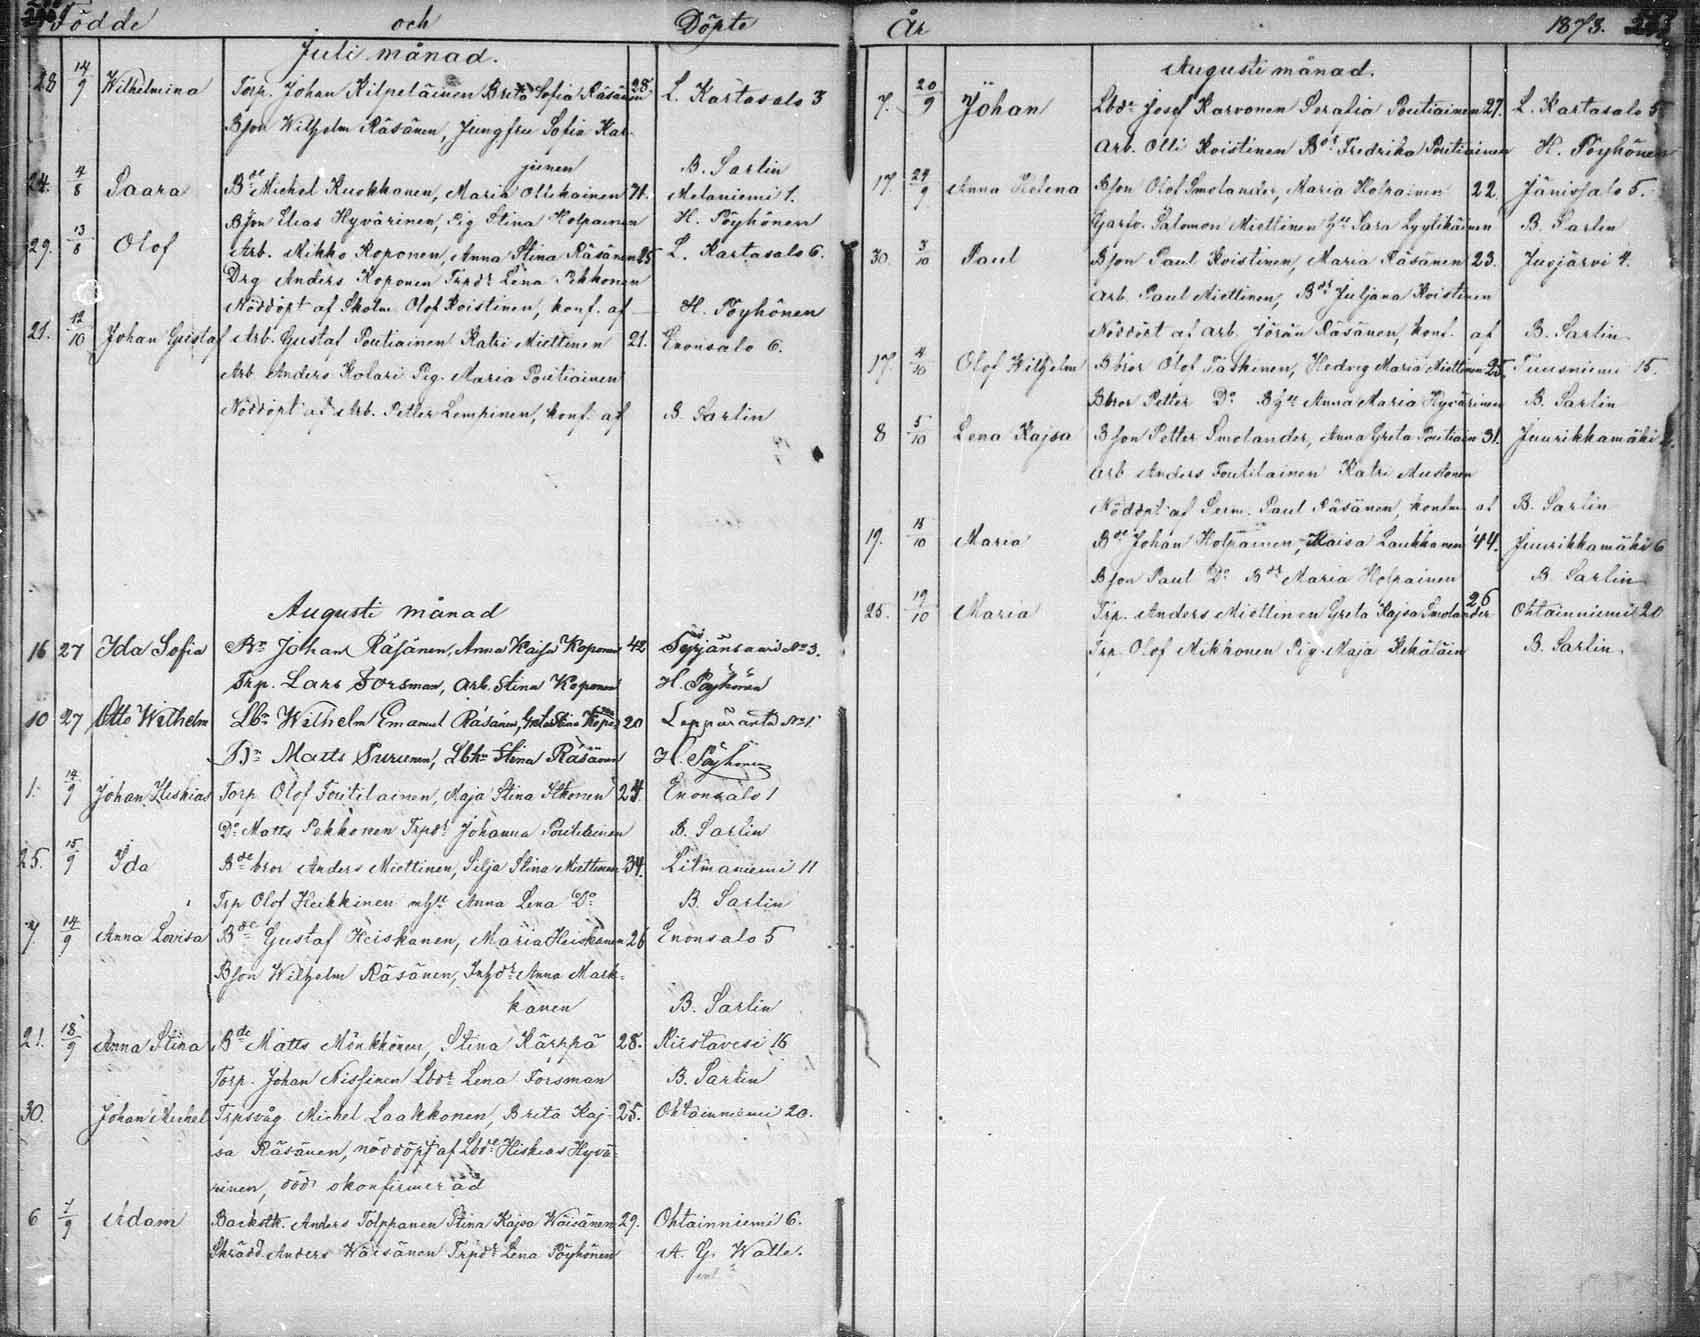 Födde och Döpte
Juli månad.
28 14/9 Wilhelmina Torp. Johan Kilpeläinen Brita Sofia Räsänen 28. L. Kartasalo 3
Bson Wilhelm Räsänen, Jungfru Sofia Kar-
junen B. Sarlin
24. 4/8 Saara Bde Michel Kuokkanen, Maria Ollikainen 71. Melaniemi 1.
Bson Elias Hyvärinen, Pig Stina Holpainen H. Pöyhönen
29. 13/8 Olof Arb. Mikko Koponen, Anna Stina Räsänen 25 L. Kartasalo 6.
Drg Anders Koponen Trpdr Lena Pekkonen
Nöddöpt af Skolm. Olof Koistinen, konf. af H. Pöyhönen
21. 12/10 Johan Gustaf Arb. Gustaf Poutiainen Katri Miettinen 21. Enonsalo 6.
Arb. Anders Kolari Pig. Maria Poutiainen
Nöddöpt af Arb. Petter Lempinen, konf. af B. Sarlin
Augusti månad
16 27 Ida Sofia Bn Johan Räsänen, Anna Kajsa Koponen 42 Syrjänsaari No 3.
Trp. Lars Forsman, Arb. Stina Koponen H. Pöyhönen
10 27 Otto Wilhelm Lbn Wilhelm Emanuel Räsänen, Greta Stina 20 Leppäranta No 1
Bn Matts Purunen, Lbhu Stina Räsänen H. Pöyhönen
1. 14/9 Johan Heskias Torp Olof Toutilainen, Maja Stina Itkonen 24. Enonsalo 1
Do Matts Pekkonen Trpdr Johanna Poutiainen B. Sarlin
25. 15/9 Ida Bde bror Anders Miettinen, Silja Stina Miettinen 34. Litmaniemi 11
Trp Olof Heikkinen m Hu Anna Lena Do B. Sarlin
7. 14/9 Anna Lovisa Bde Gustaf Heiskanen, Maria Heiskanen 26 Enonsalo 5
Bson Wilhelm Räsänen, Inhdr Anna Mark-
kanen B. Sarlin
21. 18/9 Anna Stina Bde Matts Mönkkönen, Stina Kärppä 28. Riistavesi 16
Torp. Johan Nissinen Lbdr Lena Forsman B. Sarlin
30. Johan Michel Trpsvåg Michel Laakkonen, Brita Kaj- 25. Ohtainniemi 20.
sa Räsänen, nöddöpt af Lbde Hiskias Hyvä-
rinen, död okonfirmerad
6 7/9 Adam Backstk. Anders Tolppanen Stina Kajsa Wäisänen 29. Ohtainniemi 6.
Skrädd. Anders Wäisänen Trpdr Lena Pöyhönen A. G. Walle.
År 1873.
Augusti månad.
7. 20/9 Johan Lbde Josef Karvonen Seralia Poutiainen 27. L. Kartasalo 5
Arb. Olli Koistinen Bdr Fredrika Poutiainen H. Pöyhönen
17. 24/9 Anna Helena Bson Olof Smolander, Maria Holpainen 22 Jänissalo 5.
Garfv. Salomon Miettinen Hu Sara Lyylikäinen B. Sarlin
30. 3/10 Paul Bson Paul Koistinen, Maria Räsänen 23. Juojärvi 4.
Arb. Paul Miettinen, Bdr Juljana Koistinen
Nöddöpt af Arb. Jöran Räsänen, konf. af B. Sarlin
17. 4/10 Olof Wilhelm Bbror Olof Taskinen, Hedvig Maria Miettinen 25. Tuusniemi 15.
Bbror Petter Do Bhu Anna Maria Hyvärinen B. Sarlin
8 5/10 Lena Kajsa Bson Petter Smolander, Anna Greta Poutiain 31. Juurikkamäki
Arb Anders Toutilainen Katri Mustonen
Nöddöpt af Paul Räsänen, konfm af B. Sarlin
19. 18/10 Maria Bde Johan Holpainen, Kaisa Laukkanen 44. Juurikkamäki 6
Bson Paul Do Bdr Maria Holpainen B. Sarlin
25. 19/10 Maria Trp. Anders Miettinen Greta Kajsa Smolander 26 Ohtainniemi 20
Trp. Olof Mikkonen Pig. Maja Kekäläin B. Sarlin.